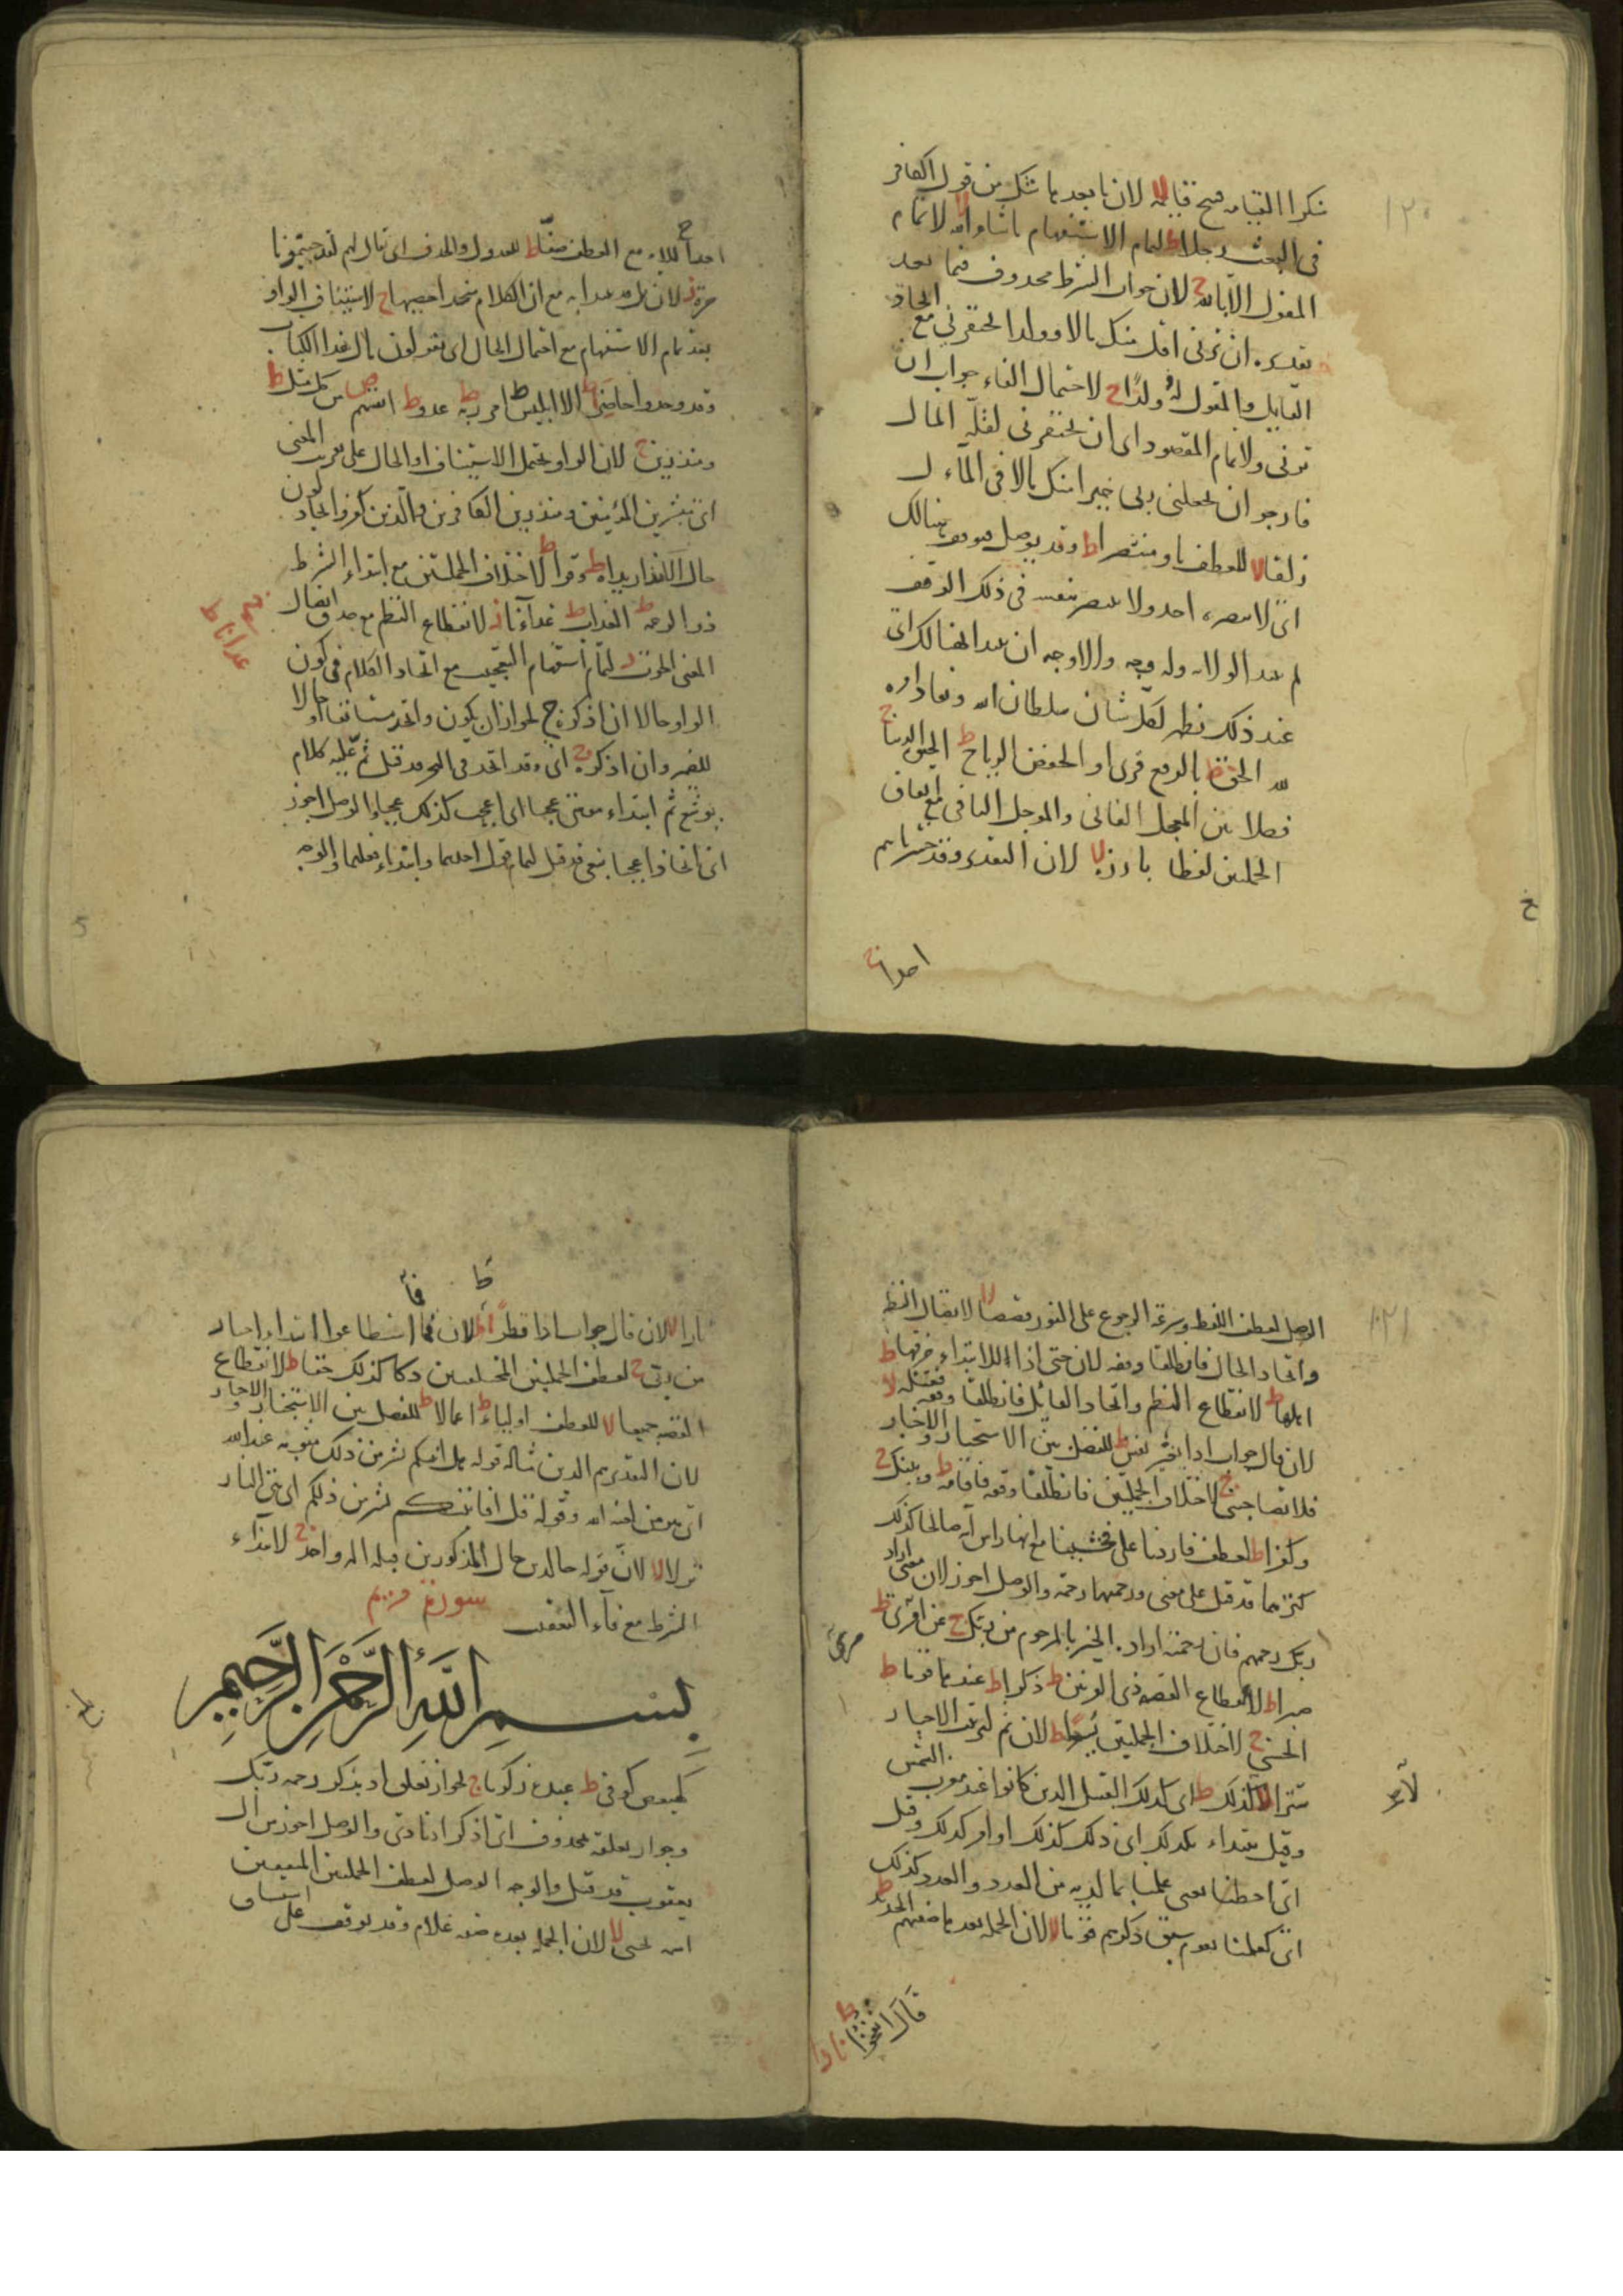 ١٢٠
منكرا القيامة صح قائمة لا لان ما بعد ما شك من قول الكافر
في البعث رجلا ط لتمام الاستفهام ما شاء الله لا لا تمام
المقول الا بالله ج لان جواب الشرط محذوف فيما بعد
تقديره ان ترني اقل منك مالا وولدا تحقرني مع اتحاد
القايل والمقول له وولدا ج لاحتمال الفاء جواب ان
ترني ولاتمام المقصود اى ان تحتقرني لقلة المال
فارجو ان يجعلني ربي خيرا منك مالا في المآء ل
زلقا لا للعطف باو منتصرا ط وقد يوصل هنالك
اى لا ينصره احد ولا ينتصر بنفسه في ذلك الوقف
الولاية وله وجه والاوجه ان يبدا بهنالك اى
عند ذلك يظهر لكل شان سلطان الله ونفاذ امره
لله الحق ط بالرفع قرئ او الخفض الرياح ط الحيوة الدنيا ج
فصلا بين المعجل الفاني والموجل الباقي مع اتفاق
الجملتين لفظا بارزة لا لان التقدير وقد حشرناهم
احدا ج
احدا ج للاية مع العطف صفا ط للعدول والحذف اى يقال لهم لقد جئتمونا
مرة ز لان بل قد يبدا به مع ان الكلام متحد احصيها ج لاستيناف الواو
بعد تمام الاستفهام مع احتمال الحال اى يقولون مال هذا الكتاب
وقد وجدوا حاضرا ط الا ابليس ط امر ربه ط عدو ط انفسهم ص كل مثل ط
ومنذرين ج لان الواو يحتمل الاستيناف او الحال على تقريب المعنى
اى مبشرين المؤمنين ومنذرين الكافرين والذين كفروا بحال كون
يداه ط وقرا ط لاختلاف الجملتين مع ابتداء الشرط
ذو الرحمة ط العذاب ط غداءنا ز لانقطاع النظم مع صدق اتصال
المعنى الحوت ز لتمام استفهام التعجيب مع اتحاد الكلام في كون
الواو حالا ان اذكره ج لجواز ان يكون واتخذ مستانفا او حالا
للضمير وان اذكره اى وقد اتخذ في البحر وقد قيل ثم عليه كلام
يوشع ثم ابتداء موسى عجبا اى اعجب كذلك عجبا والوصل اجوز
اى اتخاذا عجبا نبغي قد قيل لتمام قول احدهما وابتداء فعلهما والوجه
١٢١
الوصل لعطف اللفظ وسرعة الرجوع على الفور قصصا لا لاتصال النظم
واتحاد الحال فانطلقا وقفه لان حتى اذا للابتداء خرقها ط
اهلها ط لانقطاع النظم واتحاد القائل فانطلقا وقفه فقتله لا
لان قال جواب اذا بغير نفس ط للفصل بين الاستخبار والاخبار
فلا تصاحبني ج لاختلاف الجملتين فانطلقا وقفه فاقامه ط وبينك ج
وكفرا ط للعطف فاردنا على فخشينا مع انها راس آية صالحا كذلك
كنزهما قد قيل على معنى ورحمهما رحمة والوصل اجوز لان معنى اراد
ربك رحمهم فان رحمته اراده الخير بالمرحوم من ربك ج عن امري ط
صبرا ط لانقطاع القصة ذي القرنين ط ذكرا ط عندها قوما ط
الحسنى ج لاختلاف الجملتين يسرا ط لان ثم لترتيب الاخبار
سترا لا كذلك ط اى كذلك القبيل الذين كانوا عند مغرب الشمس
وقيل يبتداء بكذلك اى ذلك كذلك او امر كذلك وقيل
اى احطنا بمعنى علمنا بما لديه من العدد والعدد كذلك
اى كعلمنا بقوم سبق ذكرهم قوما لا لان الجملة بعدها صفتهم الحديد ط
قال انفخوا ط نارا
نارا لا لان قال جواب اذا قطرا ط لان فما اسطاعوا ابتداء اخبار
من ربي ج لعطف الجملتين المختلفتين دكا كذلك حقا ط لانقطاع
القصة جميعا لا للعطف اولياء ط اعمالا ط للفصل بين الاستخبار والاخبار
لان التقدير هم الذين مثاله قوله هل انبئكم بشر من ذلك مثوبة عند الله
اى هو من لعنه الله وقوله قل افانبئكم بشر من ذلكم اى هي النار
نزلا لا لان قوله خالدين حال المذكورين قبله اله واحد ج لابتداء
الشرط مع فآء التعقيب سورة مريم
بسم الله الرحمن الرحيم
كهيعص كوفى ط عبده زكريا ج لجواز تعلق اذ بذكر رحمة ربك
وجواز تعلقه بمحذوف اى اذكر اذ نادى والوصل اجوز من ال
يعقوب قد قيل والوجه الوصل لعطف الجملتين المتفقتين
اسمه يحيى لا لان الجملة بعده صفة غلام وقد يوقف على استيناف